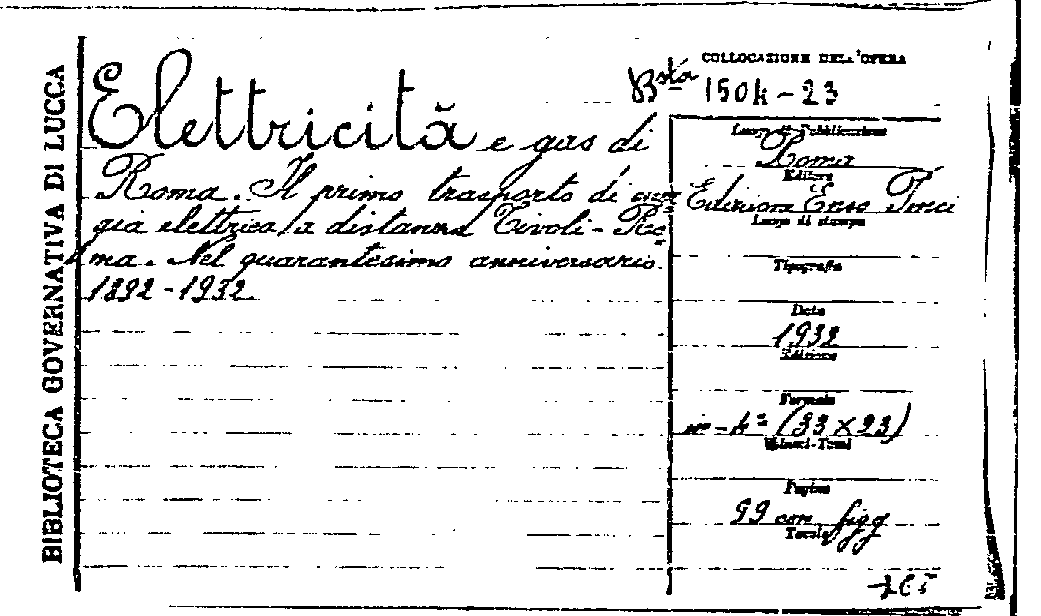 BIBLIOTECA GOVERNATIVA DI LUCCA
Elettricità e gas di
Roma. Il primo trasporto di ener
gia elettrica a distanza Tivoli-Ro
ma. Nel quarantesimo anniversario.
1892-1932
COLLOCAZIONE DELL'OPERA
Bsta 1504-23
Luogo di Pubblicazione
Roma
Editore
Edizioni Enzo Pinci
Luogo di stampa
Tipografia
Data
1932
Edizione
Formato
in-4º (33X23)
Volumi-Tomi
Pagine
99 con figg
Tavole